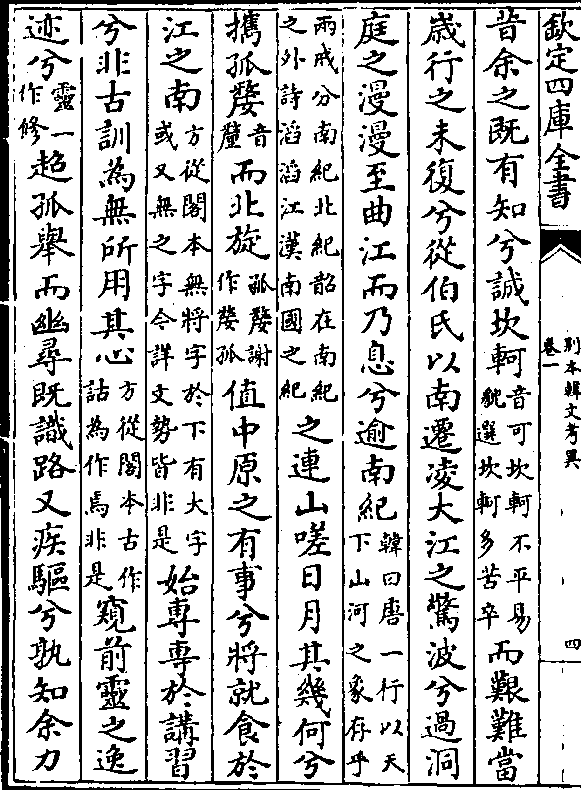 欽定四庫全書
別本韓文考異
卷一
四
昔余之既有知兮誠坎軻音可坎軻不平易貌選坎軻多苦辛而艱難當
歲行之未復兮從伯氏以南遷凌大江之驚波兮過洞
庭之漫漫至曲江而乃息兮逾南紀韓曰唐一行以天下山河之象存乎
兩戒分南紀北紀韶在南紀之外詩滔滔江漢南國之紀之連山嗟日月其幾何兮
攜孤嫠音釐而北旋孤嫠謝作嫠孤值中原之有事兮將就食於
江之南方從閣本無將字於下有大字或又無之字今詳文勢皆非是始專專於講習
兮非古訓為無所用其心方從閣本古作詁為作焉非是窺前靈之逸
迹兮靈一作修超孤舉而幽尋既識路又疾驅兮孰知余力